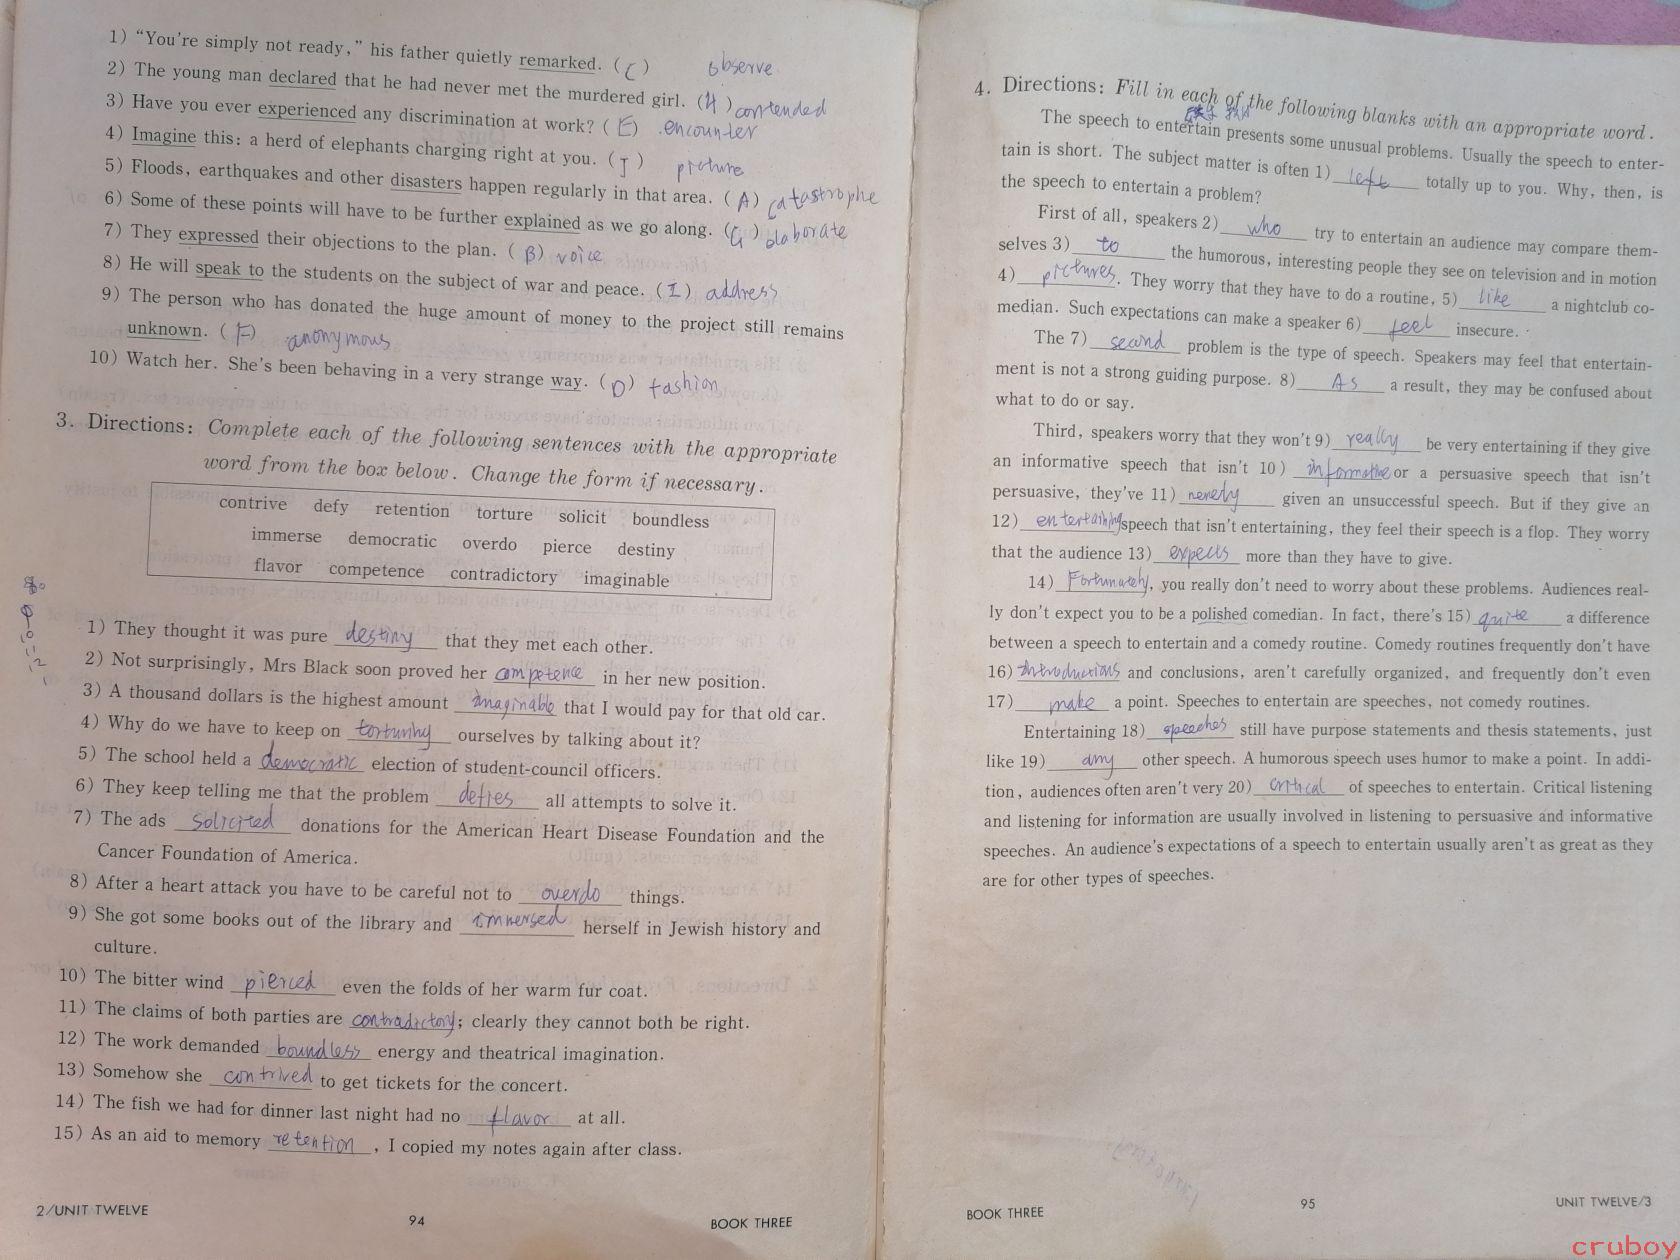 1) "You're simply not ready," his father quietly remarked. (C) observe
2) The young man declared that he had never met the murdered girl. (H) contended
3) Have you ever experienced any discrimination at work? (E) encounter
4) Imagine this: a herd of elephants charging right at you. (J) picture
5) Floods, earthquakes and other disasters happen regularly in that area. (A) catastrophe
6) Some of these points will have to be further explained as we go along. (G) elaborate
7) They expressed their objections to the plan. (B) voice
8) He will speak to the students on the subject of war and peace. (I) address
9) The person who has donated the huge amount of money to the project still remains
unknown. (F) anonymous
10) Watch her. She's been behaving in a very strange way. (D) fashion
3. Directions: Complete each of the following sentences with the appropriate
word from the box below. Change the form if necessary.
contrive defy retention torture solicit boundless
immerse democratic overdo pierce destiny
flavor competence contradictory imaginable
1) They thought it was pure destiny that they met each other.
2) Not surprisingly, Mrs Black soon proved her competence in her new position.
3) A thousand dollars is the highest amount imaginable that I would pay for that old car.
4) Why do we have to keep on torturing ourselves by talking about it?
5) The school held a democratic election of student-council officers.
6) They keep telling me that the problem defies all attempts to solve it.
7) The ads solicited donations for the American Heart Disease Foundation and the
Cancer Foundation of America.
8) After a heart attack you have to be careful not to overdo things.
9) She got some books out of the library and immersed herself in Jewish history and
culture.
10) The bitter wind pierced even the folds of her warm fur coat.
11) The claims of both parties are contradictory; clearly they cannot both be right.
12) The work demanded boundless energy and theatrical imagination.
13) Somehow she contrived to get tickets for the concert.
14) The fish we had for dinner last night had no flavor at all.
15) As an aid to memory retention, I copied my notes again after class.
2/UNIT TWELVE 94 BOOK THREE
4. Directions: Fill in each of the following blanks with an appropriate word.
The speech to entertain presents some unusual problems. Usually the speech to enter-
tain is short. The subject matter is often 1) left totally up to you. Why, then, is
the speech to entertain a problem?
First of all, speakers 2) who try to entertain an audience may compare them-
selves 3) to the humorous, interesting people they see on television and in motion
4) pictures. They worry that they have to do a routine, 5) like a nightclub co-
median. Such expectations can make a speaker 6) feel insecure.
The 7) second problem is the type of speech. Speakers may feel that entertain-
ment is not a strong guiding purpose. 8) As a result, they may be confused about
what to do or say.
Third, speakers worry that they won't 9) really be very entertaining if they give
an informative speech that isn't 10) informative or a persuasive speech that isn't
persuasive, they've 11) merely given an unsuccessful speech. But if they give an
12) entertaining speech that isn't entertaining, they feel their speech is a flop. They worry
that the audience 13) expects more than they have to give.
14) Fortunately, you really don't need to worry about these problems. Audiences real-
ly don't expect you to be a polished comedian. In fact, there's 15) quite a difference
between a speech to entertain and a comedy routine. Comedy routines frequently don't have
16) introductions and conclusions, aren't carefully organized, and frequently don't even
17) make a point. Speeches to entertain are speeches, not comedy routines.
Entertaining 18) speeches still have purpose statements and thesis statements, just
like 19) any other speech. A humorous speech uses humor to make a point. In addi-
tion, audiences often aren't very 20) critical of speeches to entertain. Critical listening
and listening for information are usually involved in listening to persuasive and informative
speeches. An audience's expectations of a speech to entertain usually aren't as great as they
are for other types of speeches.
BOOK THREE 95 UNIT TWELVE/3
cruboy